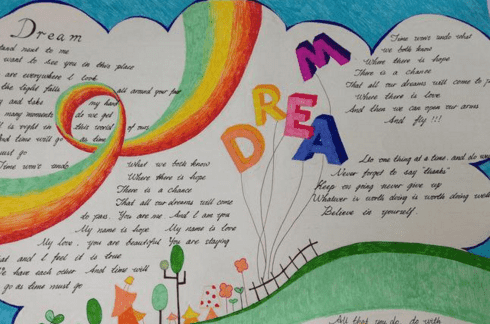 Dream
stand next to me
want to see you in this place
are everywhere I look
the light falls all around your face
and take my hand
many moments do we get
is right in this world of ours
And time will go as time
must go
Time won't undo What we both know
Where there is hope
There is a chance
That all our dreams will come
to pass. You are me And I am you
My name is hope My name is love
My love, you are beautiful You are staying
and I feel it is true
We have each other And time will
go as time must go
DREAM
Time won't undo what
we both know
Where there is hope
There is a chance
That all our dreams will come to
Where there is love
And then we can open our arms
And fly !!!
Do one thing at a time, and do
Never forget to say "thanks"
Keep on going never give up
Whatever is worth doing is worth doing well
Believe in yourself.
All that you do, do with